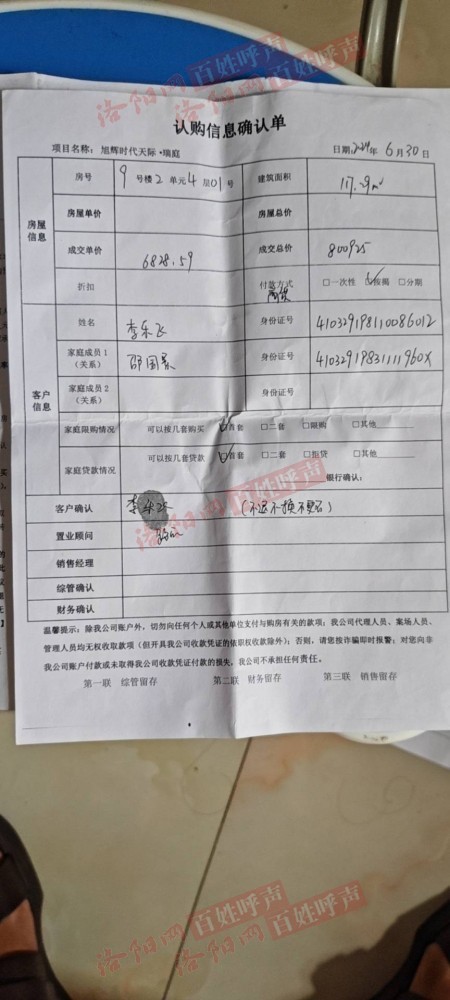 洛阳网 百姓呼声
认购信息确认单
项目名称：旭辉时代天际·瑞庭 日期2024年 6月30日
房屋信息
房号 9号楼2单元4层01号 建筑面积 117.29㎡
房屋单价 房屋总价
成交单价 6828.59 成交总价 800925
折扣 付款方式 商贷 □一次性 ☑按揭 □分期
客户信息
姓名 李乐飞 身份证号 410329198110086012
家庭成员1（关系） 邵国景 身份证号 41032919831111960X
家庭成员2（关系） 身份证号
家庭限购情况 可以按几套购买 ☑首套 □二套 □限购 □其他
家庭贷款情况 可以按几套贷款 ☑首套 □二套 □拒贷 □其他
银行确认：
客户确认 李乐飞 （不退不换不更名）
置业顾问
销售经理
综管确认
财务确认
温馨提示：除我公司账户外，切勿向任何个人或其他单位支付与购房有关的款项；我公司代理人员、案场人员、
管理人员均无权收取款项（但开具我公司收款凭证的依职权收款除外）；否则，请您按诈骗即时报警；对您向非
我公司账户付款或未取得我公司收款凭证付款的损失，我公司不承担任何责任。
第一联 综管留存 第二联 财务留存 第三联 销售留存
洛阳网 百姓呼声
洛阳网 百姓呼声